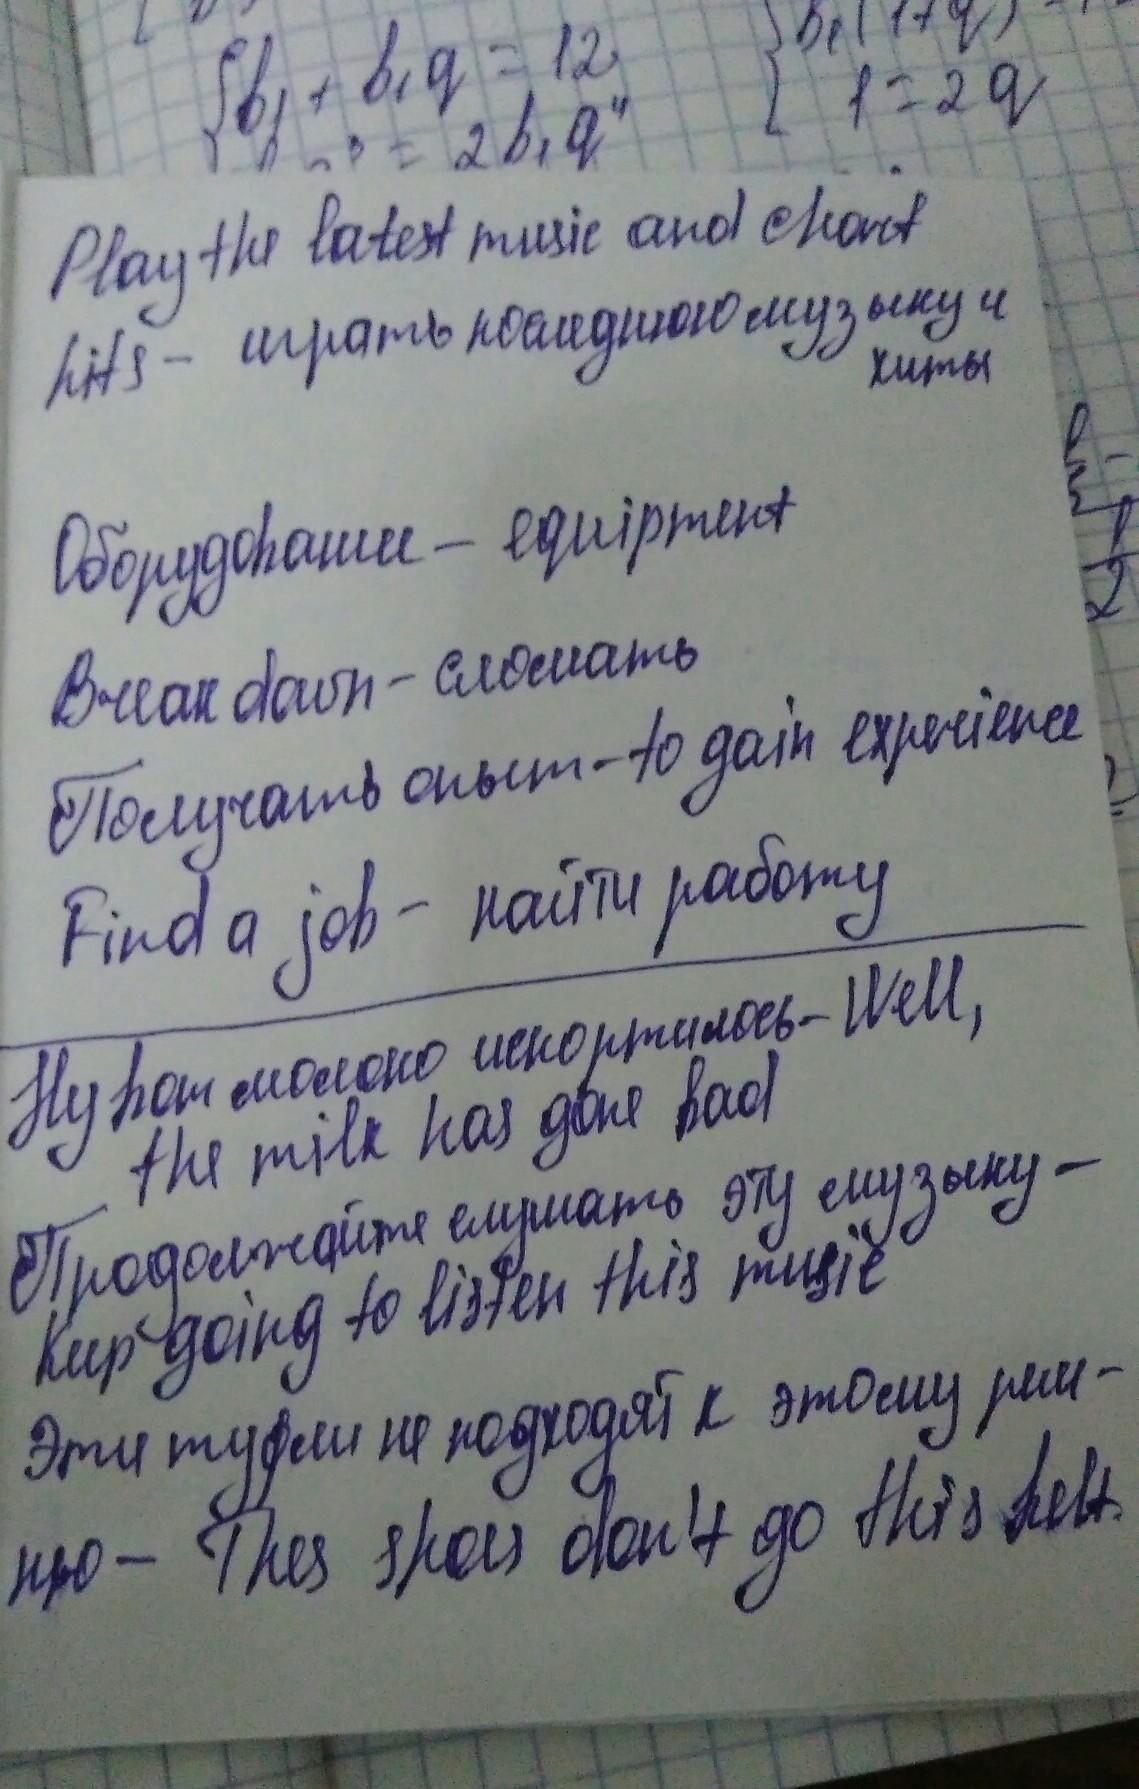 {b₁ + b₁q = 12
= 2b₁q⁴
1 = 2q
Play the latest music and chart
hits - играть последнюю музыку и
хиты
Оборудование - equipment
Break down - сломать
Получать опыт - to gain experience
Find a job - найти работу
Ну вот молоко испортилось - Well,
the milk has gone bad
Продолжайте слушать эту музыку -
Keep going to listen this music
Эти туфли не подходят к этому рем-
ню - Thes shoes don't go this belt.